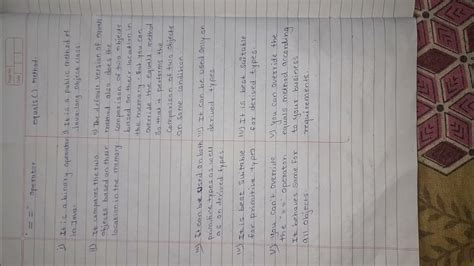 '==' operator
i) It is a binary operator
in Java.
ii) It compares the two
objects based on their
location in the memory
iii) It can be used on both
primitive types as well
as on derived types.
iv) It is best suitable
for primitive types
v) you can't override
the '==' operator.
It behaves same for
all objects.
equals() method
i) It is a public method of
java.lang.object class
ii) The default version of equals
method also does the
comparison of two objects
based on their location in
the memory. But you can
override the equals method
so that it performs the
comparison of two objects
on some condition.
iii) It can be used only on
derived types.
iv) It is best suitable
for derived types.
v) you can override the
equals method according
to your business
requirements.